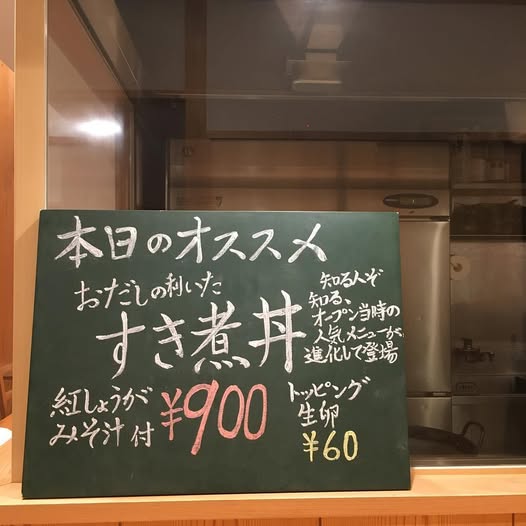 本日のオススメ
おだしの利いた
すき煮丼
知る人ぞ
知る、
オープン当時の
人気メニューが、
進化して登場
紅しょうが
みそ汁付
¥900
トッピング
生卵
¥60